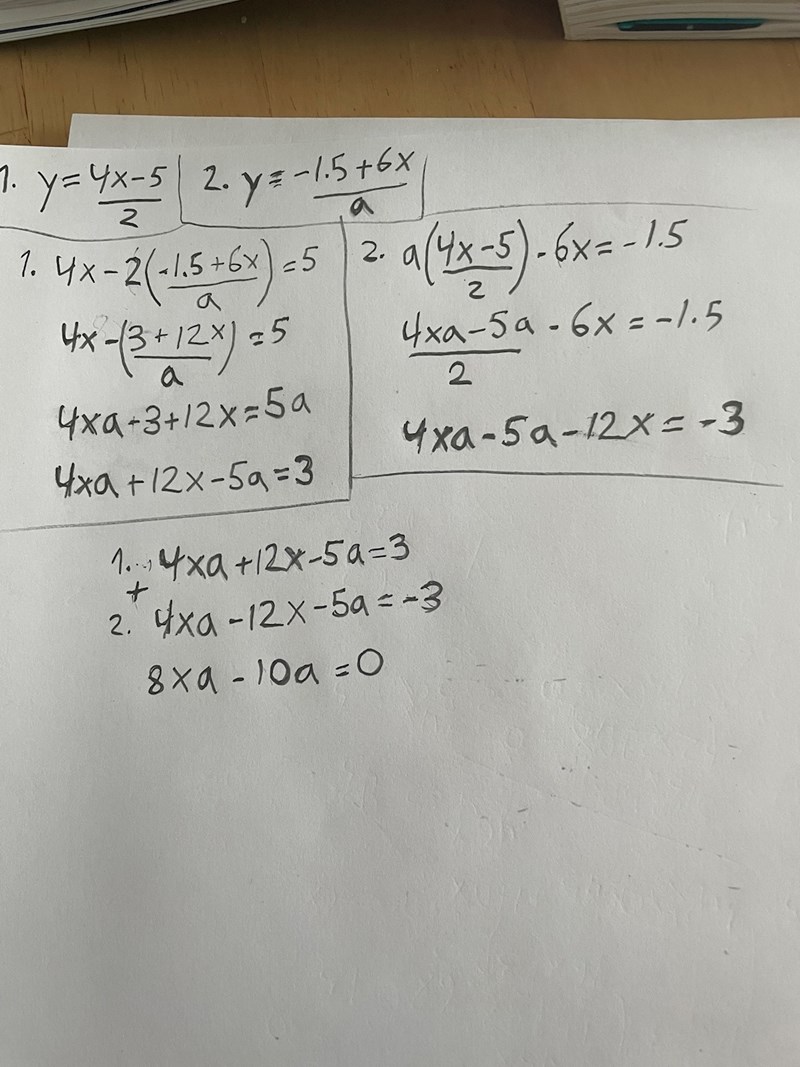 1. y = 4x-5/2
2. y = -1.5+6x/a
1. 4x - 2(-1.5+6x/a) = 5
4x - (3+12x/a) = 5
4xa - 3 + 12x = 5a
4xa + 12x - 5a = 3
2. a(4x-5/2) - 6x = -1.5
4xa - 5a/2 - 6x = -1.5
4xa - 5a - 12x = -3
1. 4xa + 12x - 5a = 3
+
2. 4xa - 12x - 5a = -3
8xa - 10a = 0